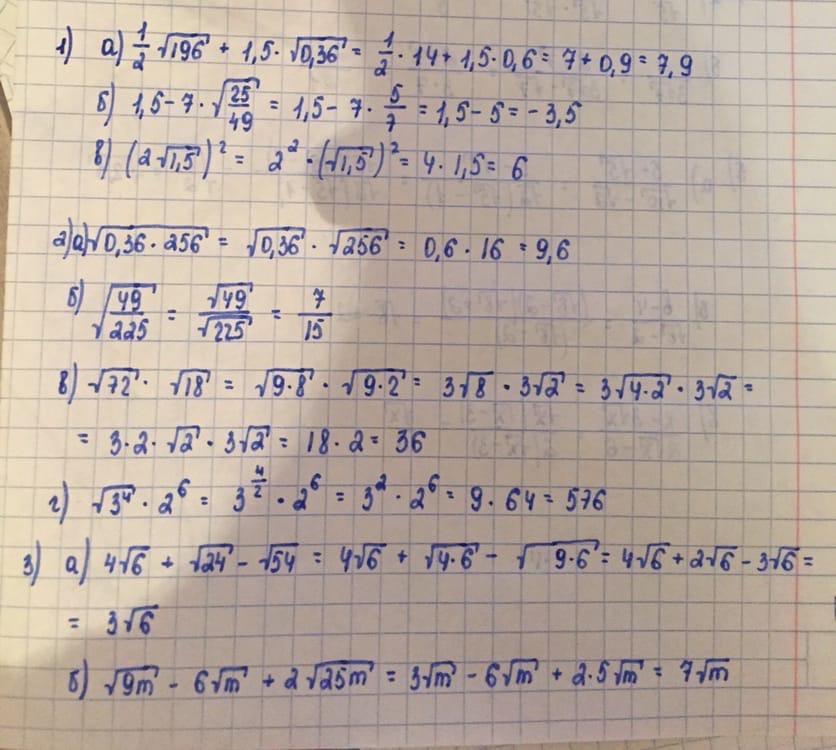 1) а) 1/2 √196 + 1,5 · √0,36 = 1/2 · 14 + 1,5 · 0,6 = 7 + 0,9 = 7,9
б) 1,5 - 7 · √(25/49) = 1,5 - 7 · 5/7 = 1,5 - 5 = -3,5
в) (2√1,5)² = 2² · (√1,5)² = 4 · 1,5 = 6
2) а) √(0,36 · 256) = √0,36 · √256 = 0,6 · 16 = 9,6
б) √(49/225) = √49/√225 = 7/15
в) √72 · √18 = √(9·8) · √(9·2) = 3√8 · 3√2 = 3√(4·2) · 3√2 =
= 3·2·√2 · 3√2 = 18 · 2 = 36
г) √3⁴ · 2⁶ = 3^(4/2) · 2⁶ = 3² · 2⁶ = 9 · 64 = 576
3) а) 4√6 + √24 - √54 = 4√6 + √(4·6) - √(9·6) = 4√6 + 2√6 - 3√6 =
= 3√6
б) √9m - 6√m + 2√25m = 3√m - 6√m + 2·5√m = 7√m